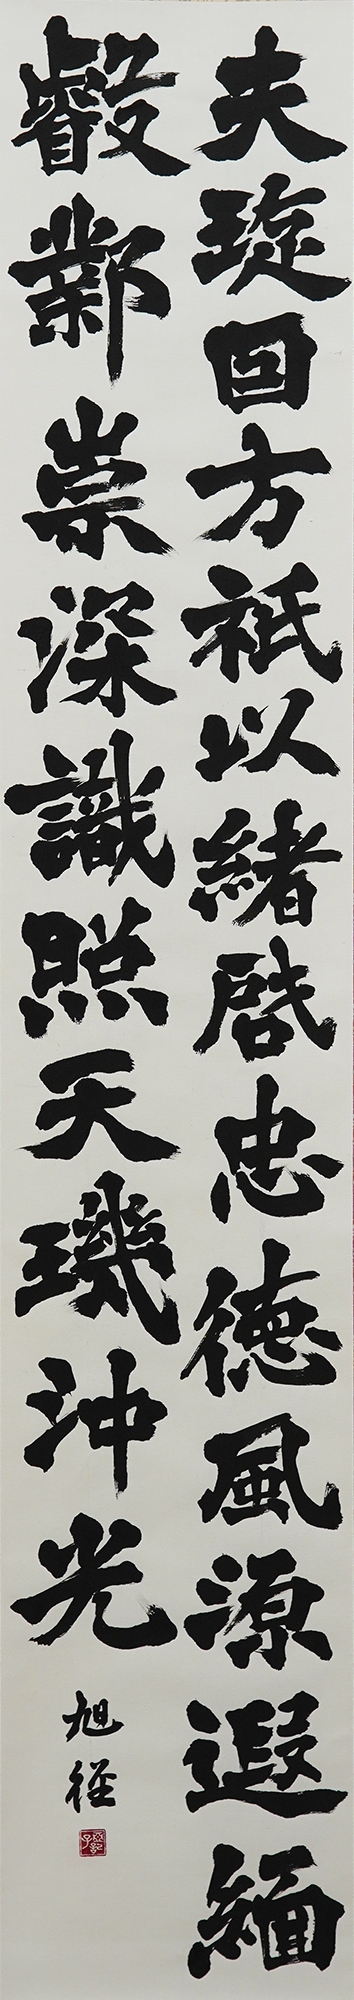 夫琁回方祇以緒啓忠徳風源遐緬
叡鄴崇深識照天璣沖光
旭径